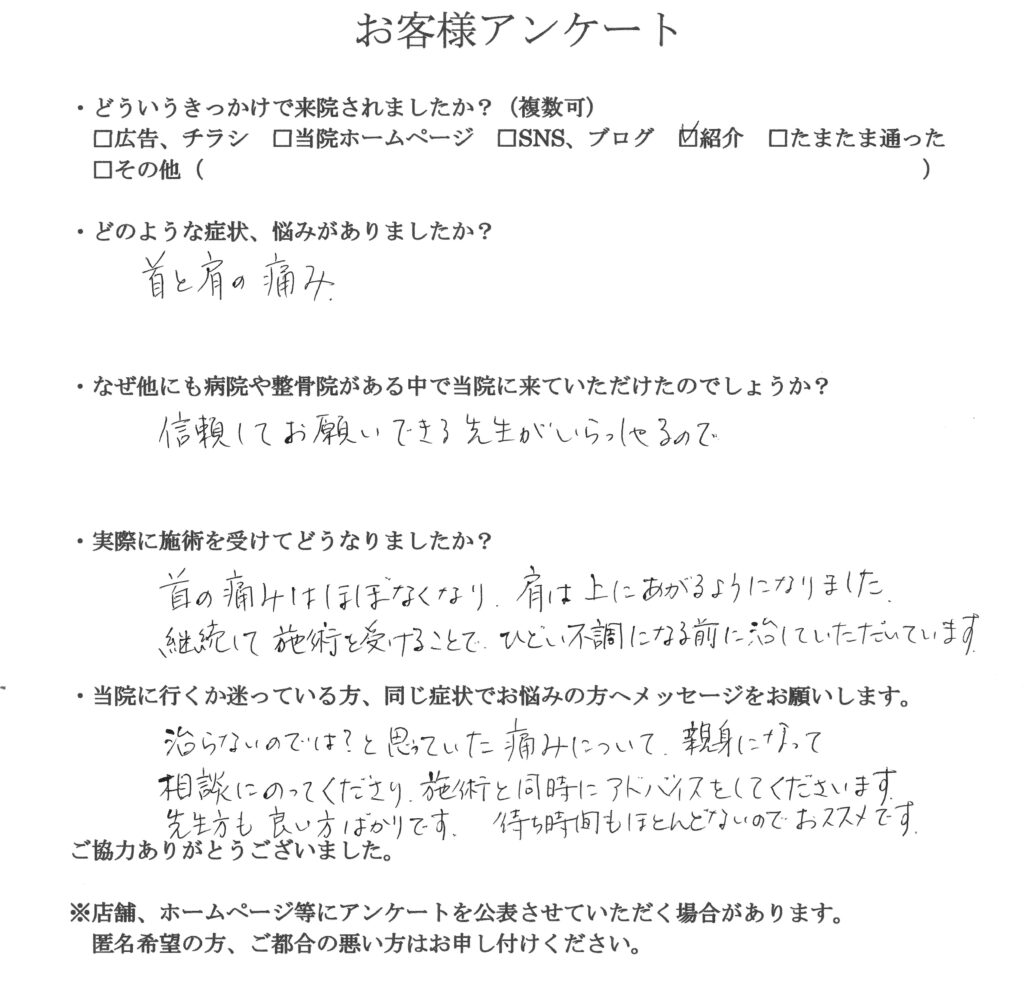 お客様アンケート
・どういうきっかけで来院されましたか？（複数可）
□広告、チラシ　□当院ホームページ　□SNS、ブログ　☑紹介　□たまたま通った
□その他（　　　　　　　　　　　　　　　　　　　　　　　　　　　　　　　　）
・どのような症状、悩みがありましたか？
首と肩の痛み.
・なぜ他にも病院や整骨院がある中で当院に来ていただけたのでしょうか？
信頼してお願いできる先生がいらっしゃるので
・実際に施術を受けてどうなりましたか？
首の痛みはほぼなくなり、肩は上にあがるようになりました.
継続して施術を受けることで、ひどい不調になる前に治していただいています.
・当院に行くか迷っている方、同じ症状でお悩みの方へメッセージをお願いします。
治らないのでは？と思っていた痛みについて、親身になって
相談にのってくださり、施術と同時にアドバイスをしてくださいます.
先生方も良い方ばかりです.　待ち時間もほとんどないのでおススメです.
ご協力ありがとうございました。
※店舗、ホームページ等にアンケートを公表させていただく場合があります。
匿名希望の方、ご都合の悪い方はお申し付けください。